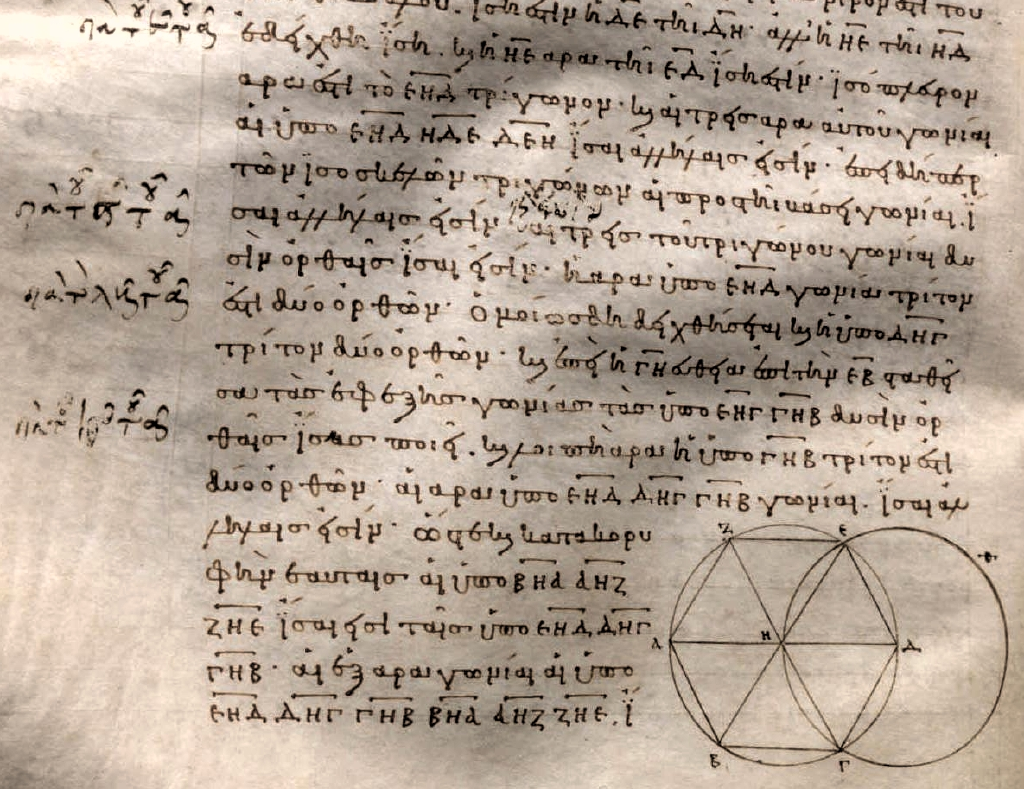 ἴση ἐστὶν ἡ ΔΕ τῆι ΔΗ· ἀλλ' ἡ ΗΕ τῆι ΗΔ
ἐδείχθη ἴση. καὶ ἡ ΗΕ ἄρα τῆι ΕΔ ἴση ἐστίν· ἰσόπλευρον
ἄρα ἐστὶ τὸ ΕΗΔ τρίγωνον· καὶ αἱ τρεῖς ἄρα αὐτοῦ γωνίαι
αἱ ὑπὸ ΕΗΔ ΗΔΕ ΔΕΗ ἴσαι ἀλλήλαις εἰσίν· ἐπειδήπερ
τῶν ἰσοσκελῶν τριγώνων αἱ πρὸς τῆι βάσει γωνίαι. ἴ
σαι ἀλλήλαις εἰσίν αἱ τρεῖς τοῦ τριγώνου γωνίαι δυ
σὶν ὀρθαῖς ἴσαι εἰσίν· ἡ ἄρα ὑπὸ ΕΗΔ γωνία τρίτον
ἐστὶ δύο ὀρθῶν· ὁμοίως δὴ δειχθήσεται καὶ ἡ ὑπὸ ΔΗΓ
τρίτον δύο ὀρθῶν· καὶ ἐπεὶ ἡ ΓΗ εὐθεῖα ἐπὶ τὴν ΕΒ σταθεῖ
σα τὰς ἐφεξῆς γωνίας τὰς ὑπὸ ΕΗΓ ΓΗΒ δυσὶν ὀρ
θαῖς ἴσας ποιεῖ. καὶ λοιπὴ ἄρα ἡ ὑπὸ ΓΗΒ τρίτον ἐστὶ
δύο ὀρθῶν· αἱ ἄρα ὑπὸ ΕΗΔ ΔΗΓ ΓΗΒ γωνίαι. ἴσαι ἀλ
λήλαις εἰσίν· ὥστε καὶ κατὰ κορυ
φὴν ἑαυταῖς αἱ ὑπὸ ΒΗΑ ΑΗΖ
ΖΗΕ ἴσαι εἰσὶ ταῖς ὑπὸ ΕΗΔ ΔΗΓ
ΓΗΒ· αἱ ἓξ ἄρα γωνίαι αἱ ὑπὸ
ΕΗΔ ΔΗΓ ΓΗΒ ΒΗΑ ΑΗΖ ΖΗΕ. ἴ
Ζ Ε Θ
Α Η Δ
Β Γ